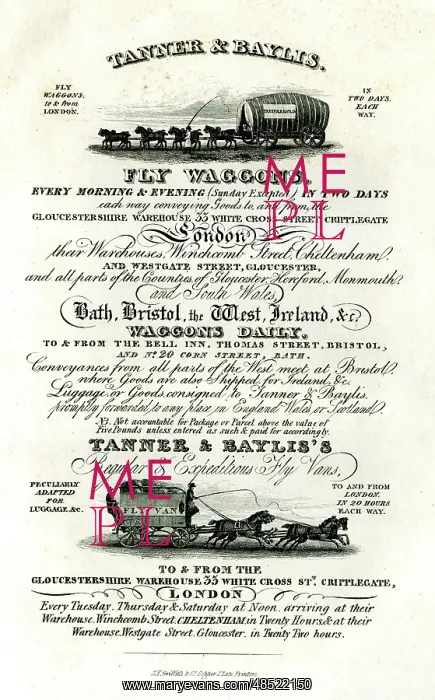 TANNER & BAYLIS.
FLY
WAGGONS,
to & from
LONDON.
IN
TWO DAYS,
EACH
WAY.
FLY WAGGONS,
EVERY MORNING & EVENING (Sunday Excepted) IN TWO DAYS
each way conveying Goods to, and from, the
GLOUCESTERSHIRE WAREHOUSE 33 WHITE CROSS STREET CRIPPLEGATE
London
their Warehouses, Winchcomb Street, Cheltenham,
AND WESTGATE STREET, GLOUCESTER,
and all parts of the Counties of Gloucester, Hereford, Monmouth,
and South Wales,
Bath, Bristol, the West, Ireland, &c.
WAGGONS DAILY,
TO & FROM THE BELL INN, THOMAS STREET, BRISTOL,
AND No. 20 CORN STREET, BATH.
Conveyances from all parts of the West meet at Bristol,
where Goods are also Shipped for Ireland, &c.
Luggage, or Goods, consigned to Tanner & Baylis,
promptly forwarded to any place in England Wales or Scotland.
NB. Not accountable for Package or Parcel above the value of
Five Pounds unless entered as such & paid for accordingly.
TANNER & BAYLIS'S
Regular & Expeditious Fly Vans,
PECULIARLY
ADAPTED
FOR
LUGGAGE, &c.
FLY VAN
TO AND FROM
LONDON,
IN 20 HOURS
EACH WAY.
TO & FROM THE
GLOUCESTERSHIRE WAREHOUSE 33 WHITE CROSS ST., CRIPPLEGATE,
LONDON
Every Tuesday, Thursday & Saturday at Noon, arriving at their
Warehouse, Winchcomb Street, CHELTENHAM, in Twenty Hours & at their
Warehouse, Westgate Street, Gloucester, in Twenty Two hours.
ME
PL
ME
PL
www.maryevans.com/48522150